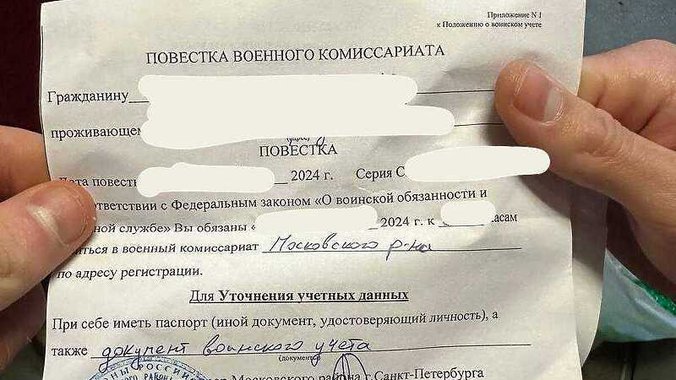 Приложение N 1
к Положению о воинском учете
ПОВЕСТКА ВОЕННОГО КОМИССАРИАТА
Гражданину
проживающем
ПОВЕСТКА
Дата повестк 2024 г. Серия С
ответствии с Федеральным законом «О воинской обязанности и
ной службе» Вы обязаны « 2024 г. к часам
иться в военный комиссариат Московского р-на
по адресу регистрации.
Для Уточнения учетных данных
При себе иметь паспорт (иной документ, удостоверяющий личность), а
также документ воинского учета
(документ)
Московского района г.Санкт-Петербурга